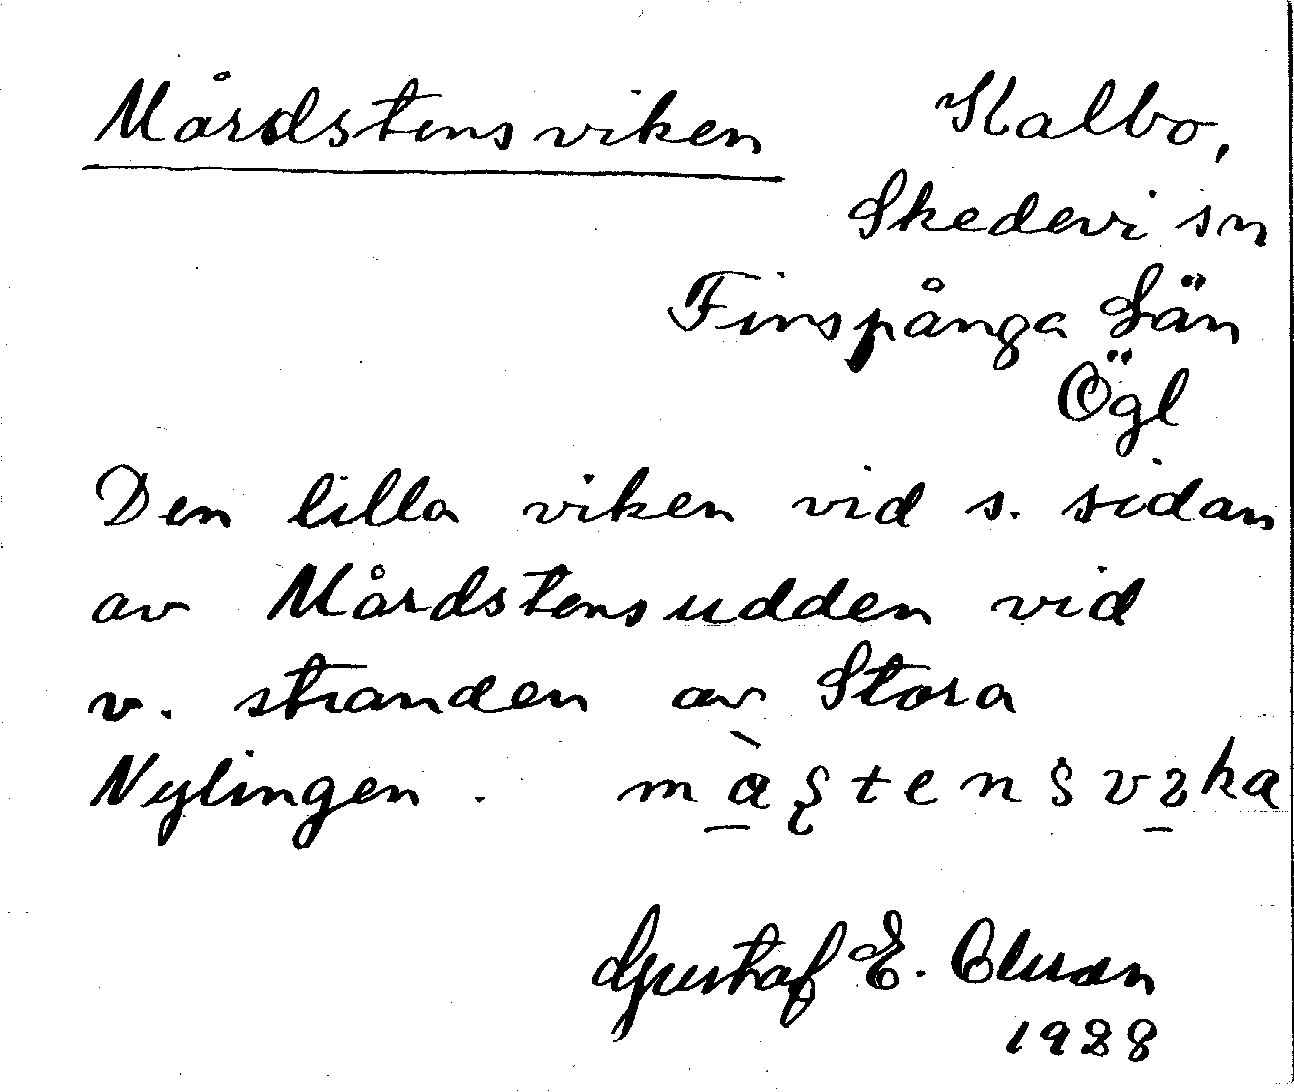 Mårdstensviken Kalbo,
Skedevi sn
Finspånga Län
Ögl
Den lilla viken vid s. sidan
av Mårdstensudden vid
v. stranden av Stora
Nylingen.
Gustaf E.
1928